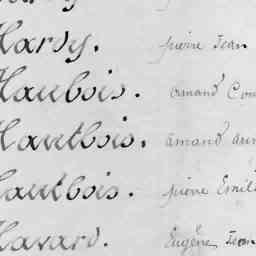 Hardy. pierre Jean
Haubois. armand Com
Hautbois. amand
Hautbois. pierre Emil
Havard. Eugène Jean